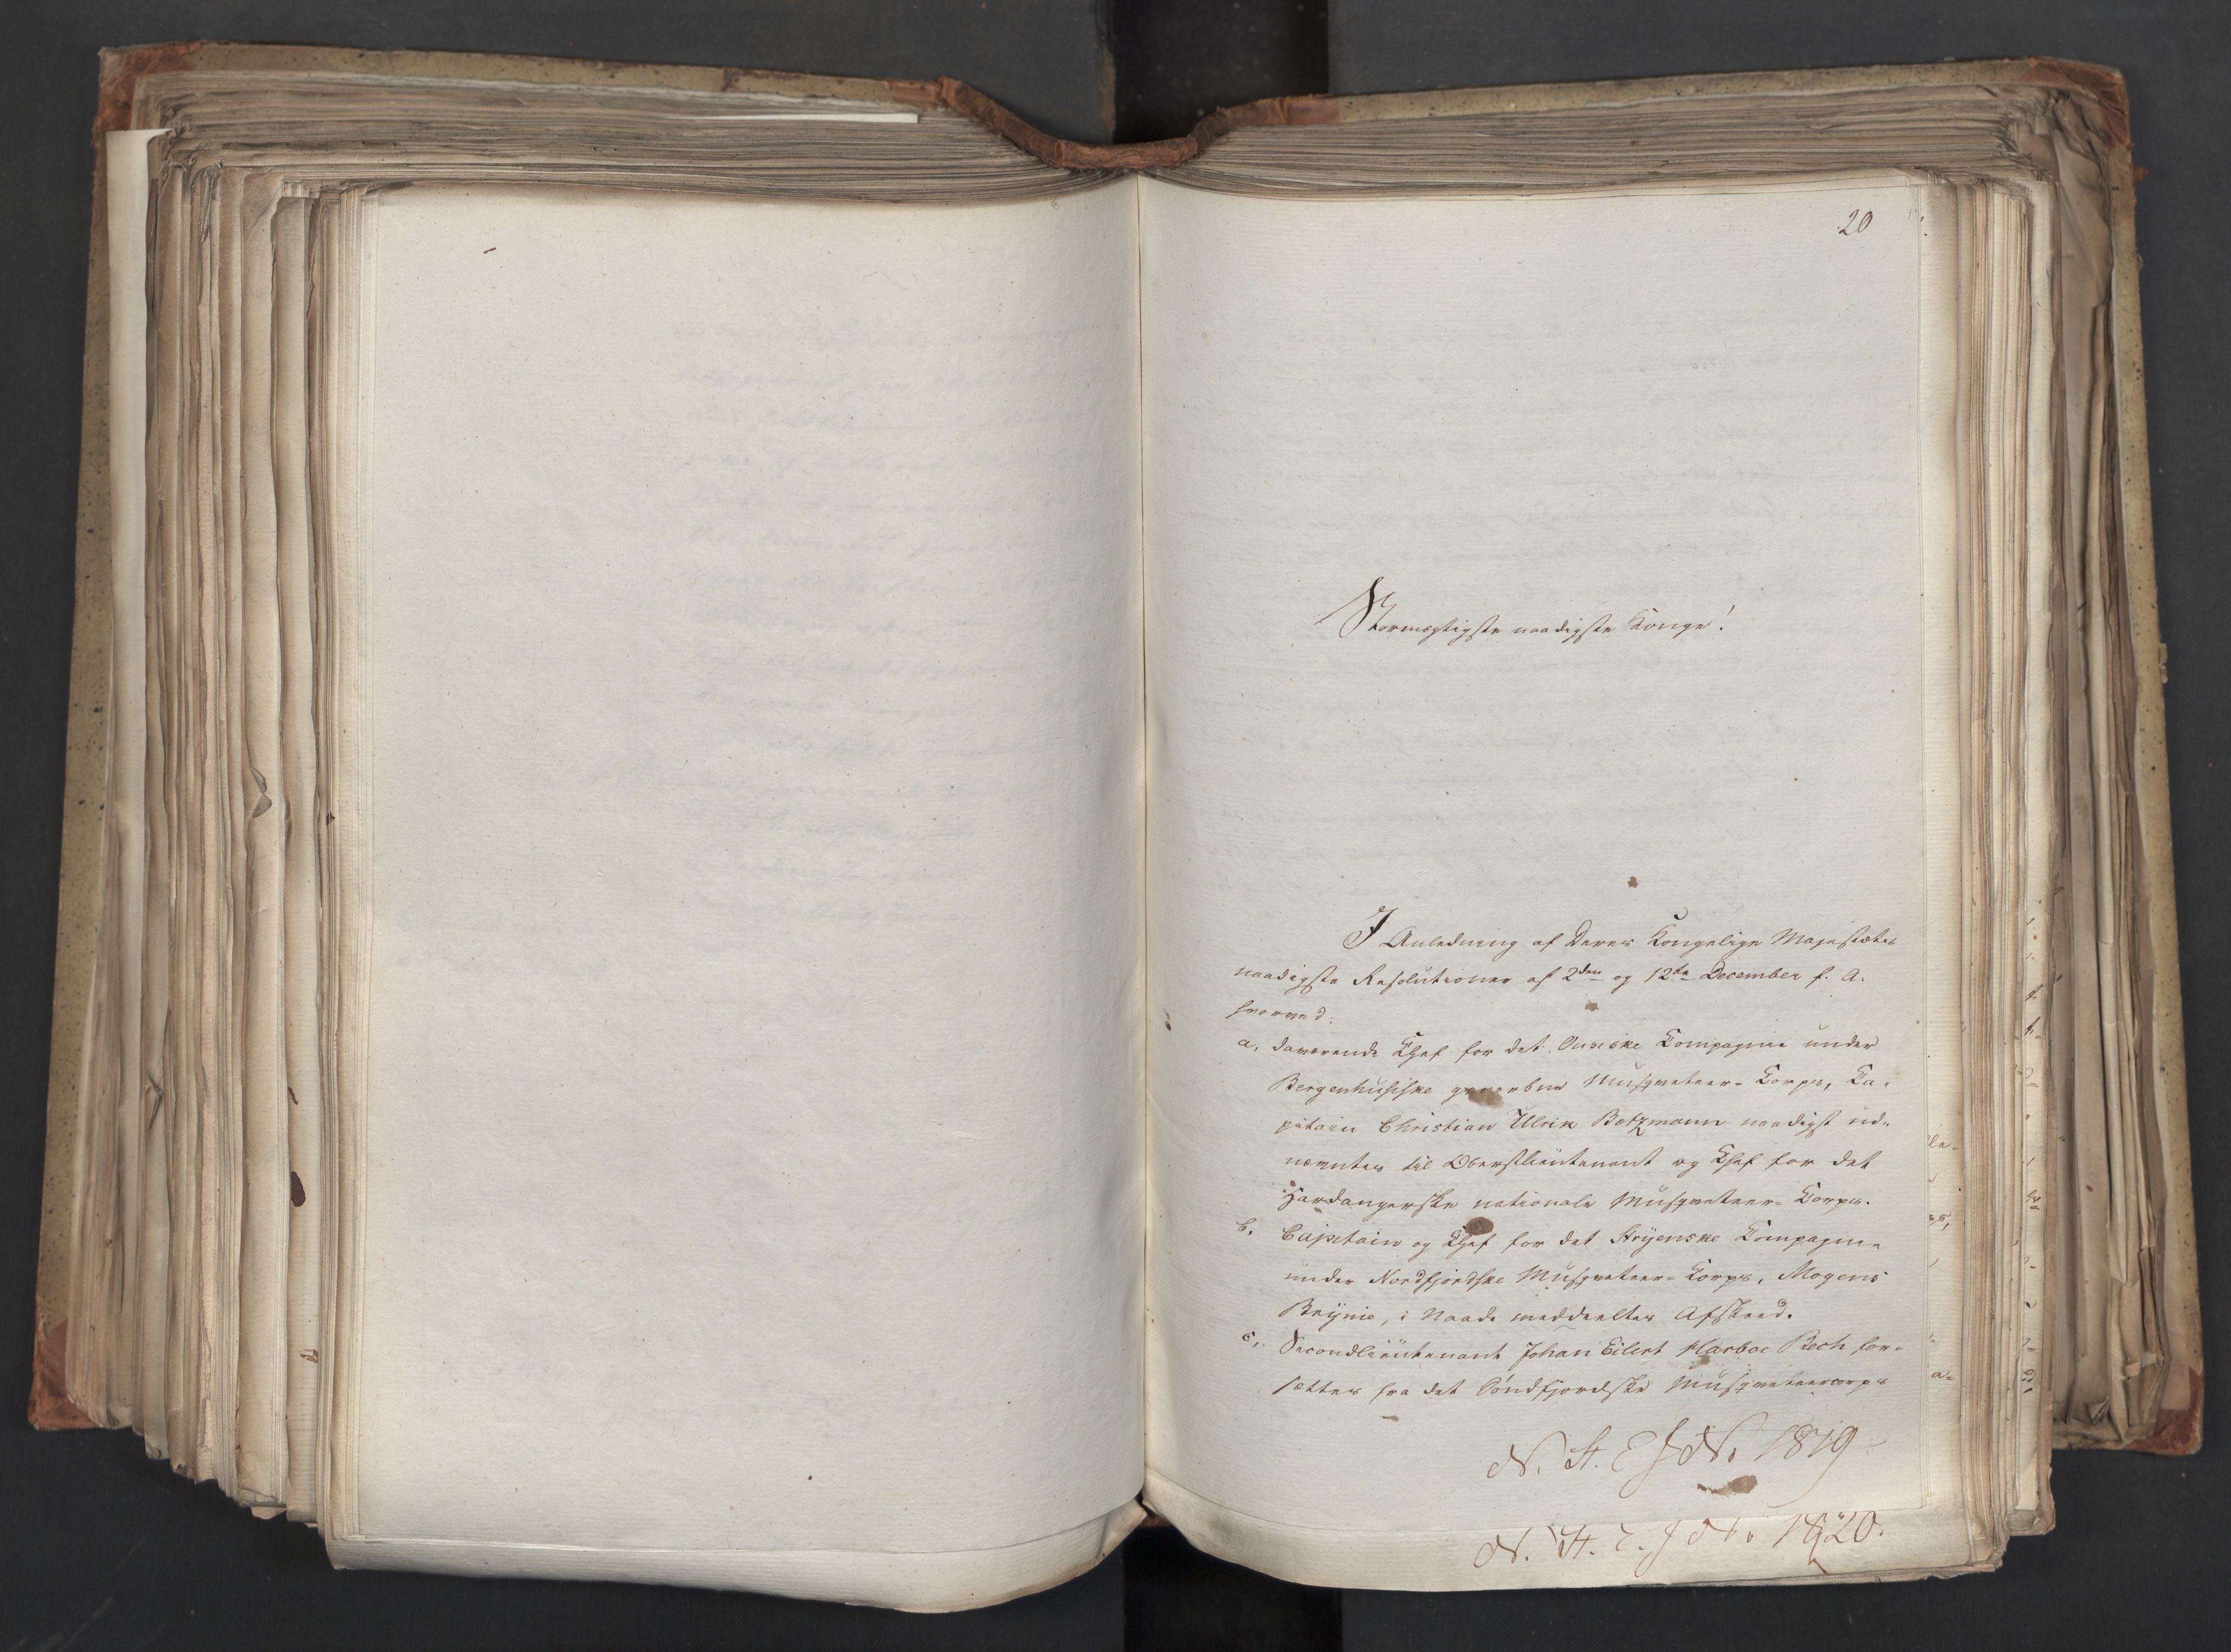 20
Stormægtigste naadigste Konge!
I Anledning af Deres Kongelige Majestæts
naadigste Resolutioner af 2den og 12te December f. A.
hvorved:
a, daværende Chef for det Ousiske Compagnie under
Bergenhusiske gevorbne Musqueteer-Corps, Ca-
pitain Christian Ulrik Botzmann naadigst ud-
nævntes til Oberstlieutenant og Chef for det
Hardangerske nationale Musqueteer-Corps.
b, Capitain og Chef for det Stryenske Compagnie
under Nordfjordske Musqueteer-Corps, Mogens
Brynie, i Naade meddeeltes Afskeed.
c, Secondlieutenant Johan Eilert Harboe Bech for-
sættes fra det Søndfjordske Musqueteercorps
N. St. E. J No 1819
N. St. E. J No 1820.